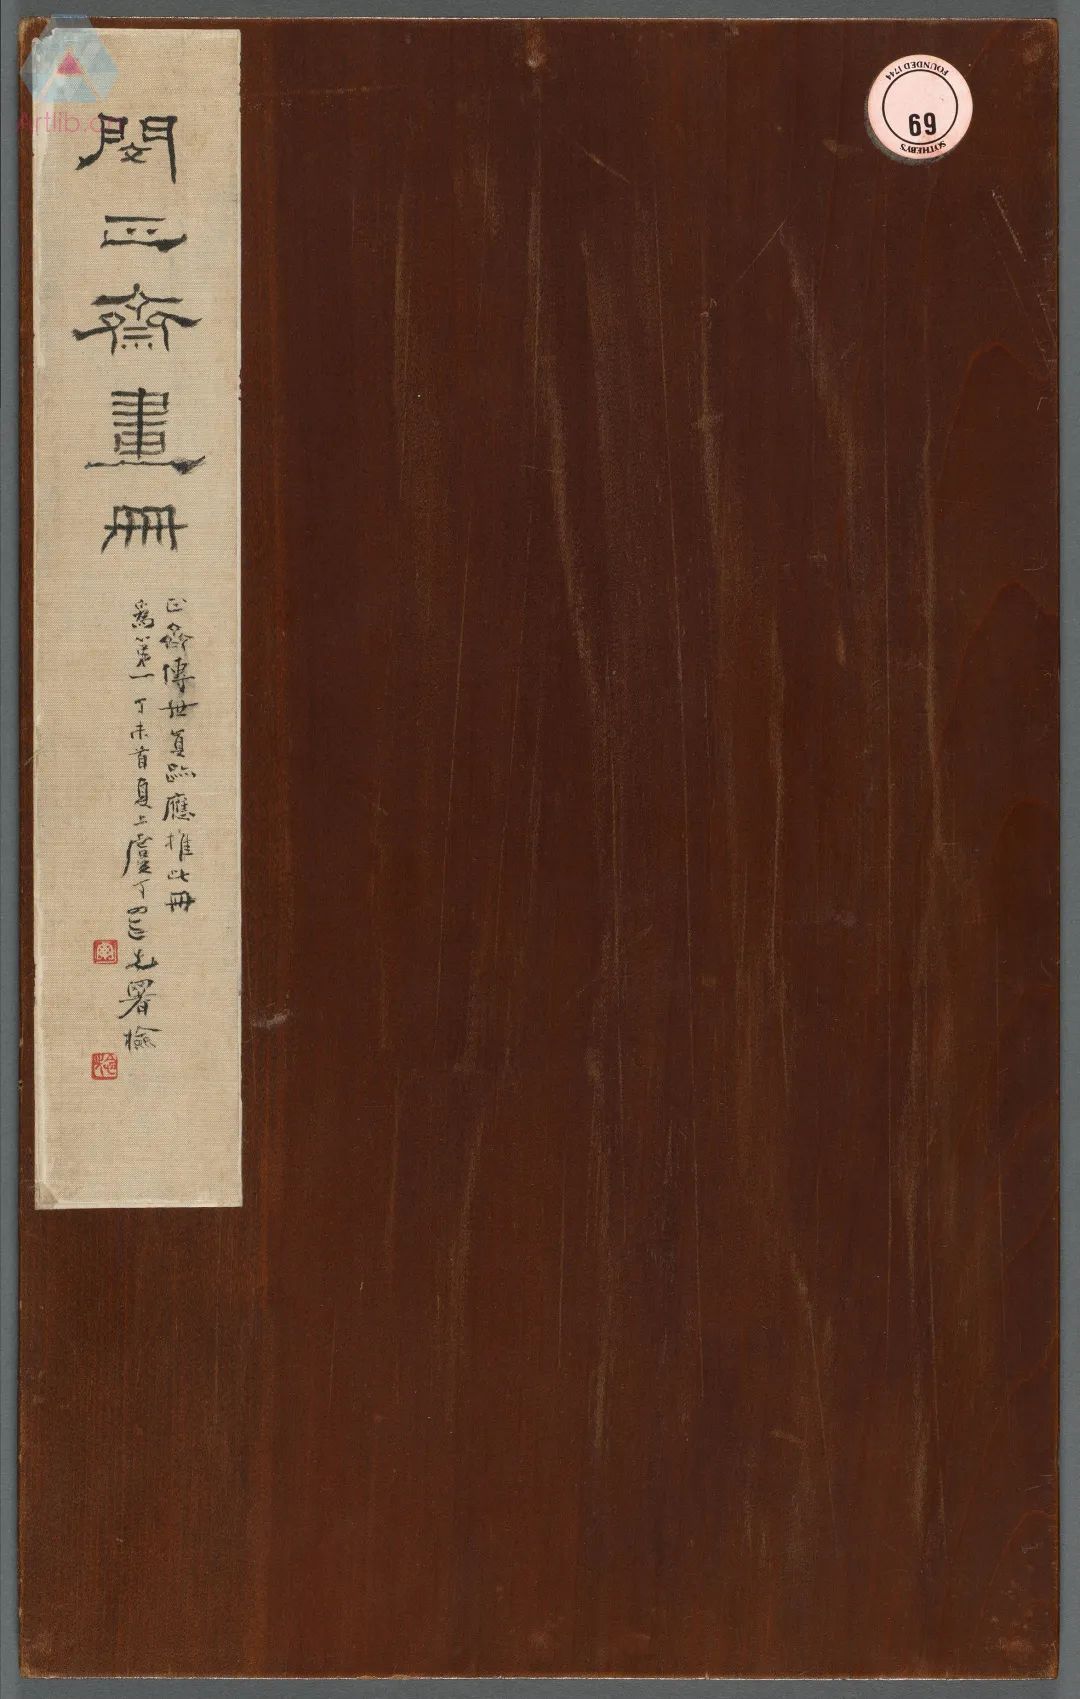 閔正齋畫冊
正齋傳世真跡應推此冊
為第一丁未首夏上虞丁輔之署檢
Artlib.c
FOUNDED 1744
69
SOTHEBY'S